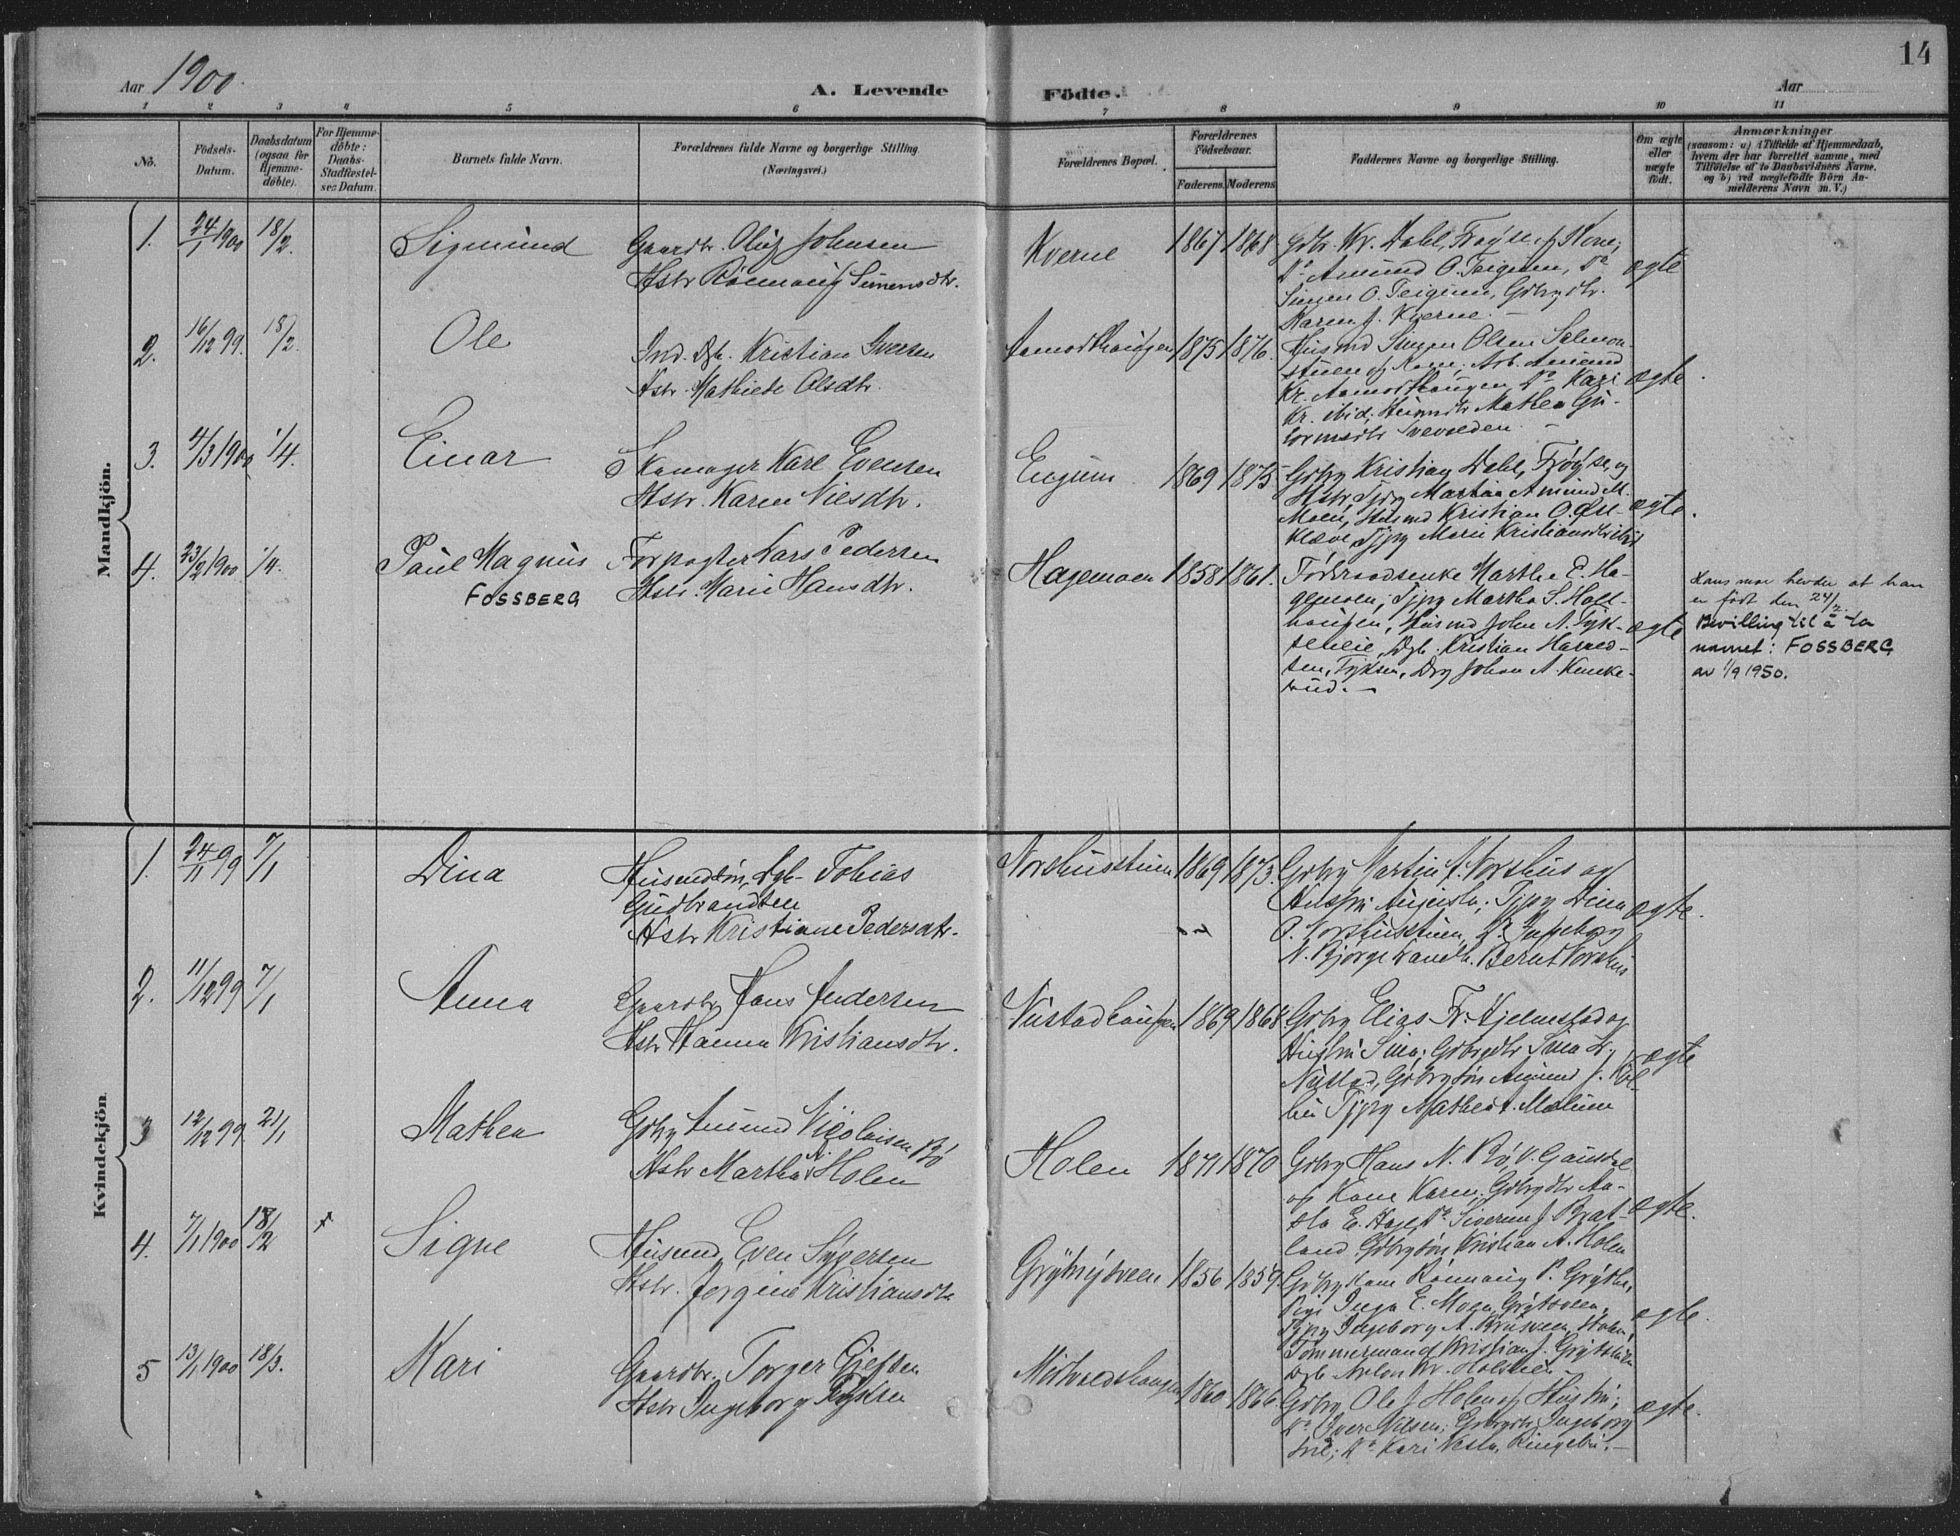 14
Aar 1900.
A. Levende Födte.
Aar
1 2 3 4 5 6 7 8 9 10 11
No.
Födsels-Datum.
Daabsdatum (ogsaa for Hjemme-döbte).
For Hjemme-döbte: Daabs-Stadfæstel-ses Datum.
Barnets fulde Navn.
Forældrenes fulde Navne og borgerlige Stilling.
(Næringsvei.)
Forældrenes Bopæl.
Forældrenes Födselsaar.
Faderens. Moderens.
Faddernes Navne og borgerlige Stilling.
Om ægte eller uægte födt.
Anmærkninger
(saasom: a) i Tilfælde af Hjemmedaab,
hvem der har forrettet samme, med
Tilföielse af to Daabsvidners Navne,
og b) ved uægtefödte Börn An-
melderens Navn m. V.)
Mandkjön.
1. 24/1 1900 18/2. Sigmund
Gaardbr. Oluf Johnsen
Hstr Rönnaug Simensdtr.
Kverne 1867 1868
Gdbr. Kr. Dahl, Frøyse og Kone;
Do Amund O. Teigum, Do
Simen O. Teigum, Gdbrdtr.
Karen J. Kverne. —
ægte
2. 16/12 99. 18/2. Ole
Ind. Dgl. Kristian Iversen
Hstr Mathilde Olsdtr.
Aamodthaugen 1875 1876.
Husmd Simen Olsen
og Kone; Arb. Amund
Kr. Aamodthaugen, Do Kari
Kr. ibid. Mathea Gu-
tormsdtr
ægte.
3. 4/3 1900 1/4. Einar
Skomager Karl Evensen
Hstr. Karen Nilsdtr.
Engum 1869 1875
Gdbr Kristian Dahl, Frøyse og
Hstr, Tjpg Martina Amundsd.
Moen, Husmd Kristian O.
Tjpg Marie Kristiansdtr ibid
ægte.
4. 23/2 1900 1/4. Paul Magnus
FOSSBERG
Forpagter Lars Pedersen
Hstr. Marie Hansdtr.
Hagemoen 1858 1861.
Föderaadsenke Marthe E. Ha-
gemoen; Tjpg Martha S. Holt-
haugen, Husmd John A. Fyk-
seneie, Dgl. Kristian Harald-
sen, Fyksen, Drg Johan A. Kanke-
rud. —
ægte
Hans mor hevder at han
er født den 24/2.
Bevilling til å ta
navnet: FOSSBERG
av 1/9 1950.
Kvindekjön
1. 24/11 99 7/1 Dina
Husmdsön, Dgl. Tobias
Gudbrandsen
Hstr Kristiane Pedersdtr.
Norshusstuen 1869 1873.
Gdbr Martin A. Norshus og
Hustru Augusta; Tjpg Dina
O. Norshusstuen, Do Ingeborg
Bernt Norshus
ægte.
2. 11/12 99 7/1 Anna
Gaardbr Hans Andersen
Hstr Hanna Kristiansdtr.
Nustadhaugen 1869 1868
Gdbr Elias Fr. Hjelmstad og
Hustru Sina; Gdbrdtr Sina
Nustad, Gdbrsön Amund J.
Tjpg Mathea A. Melum
ægte
3 12/12 99 21/1 Mathea
Gdbr Amund Nicolaisen Bö
Hstr Martha A. Holen
Holen 1871 1870
Gdbr Hans N. Bö, V. Gausdal
og Kone Karen; Gdbrdtr Aa-
sta E. Hage, Do Siverine J. Brat-
land, Gdbrsön Kristian A. Holen
ægte.
4. 7/1 1900 18/2 + Signe
Husmd Even Syversen
Hstr. Jörgine Kristiansdtr
Gryttingsveen 1856 1859
Gdbr kone Rönnaug P.
Pige Inga E. Moen,
Tjpg Ingeborg A.
Tömmermand Kristian J.
Dgl. Anton Kr. Holsveen
ægte.
5 13/1 1900 18/3. Kari
Gaardbr. Torger Gjefsen
Hstr Ingeborg
1860 1866.
Gdbr Ole J Holen og Hustru;
Do Iver Nilsen; Gdbrdtr Ingeborg
Do Kari Ringebu. —
ægte.